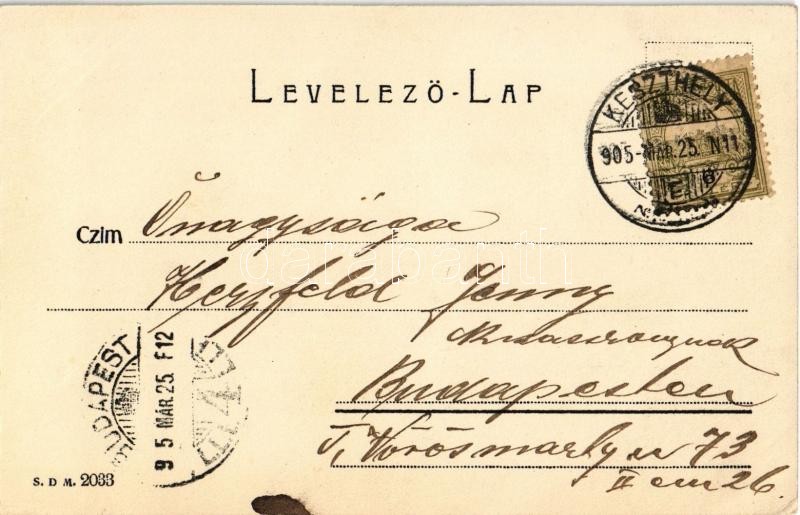 LEVELEZŐ-LAP
KESZTHELY
905-MÁR.25. N11
Czím Őnagysága
Herzfeld Jenny
kisasszonynak
Budapesten
Vörösmarty u 73
II em 26.
BUDAPEST
95 MÁR.25. F12
S. D M. 2033
darabanth